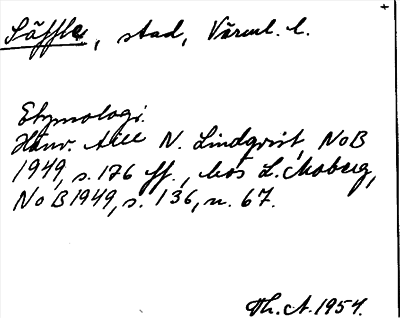 Säffle, stad, Värml. l.
Etymologi.
Hänv. till N. Lindqvist, NoB
1949, s. 126 ff., hos L. Moberg,
NoB 1949, s. 136, n. 67.
Th. A. 1954.